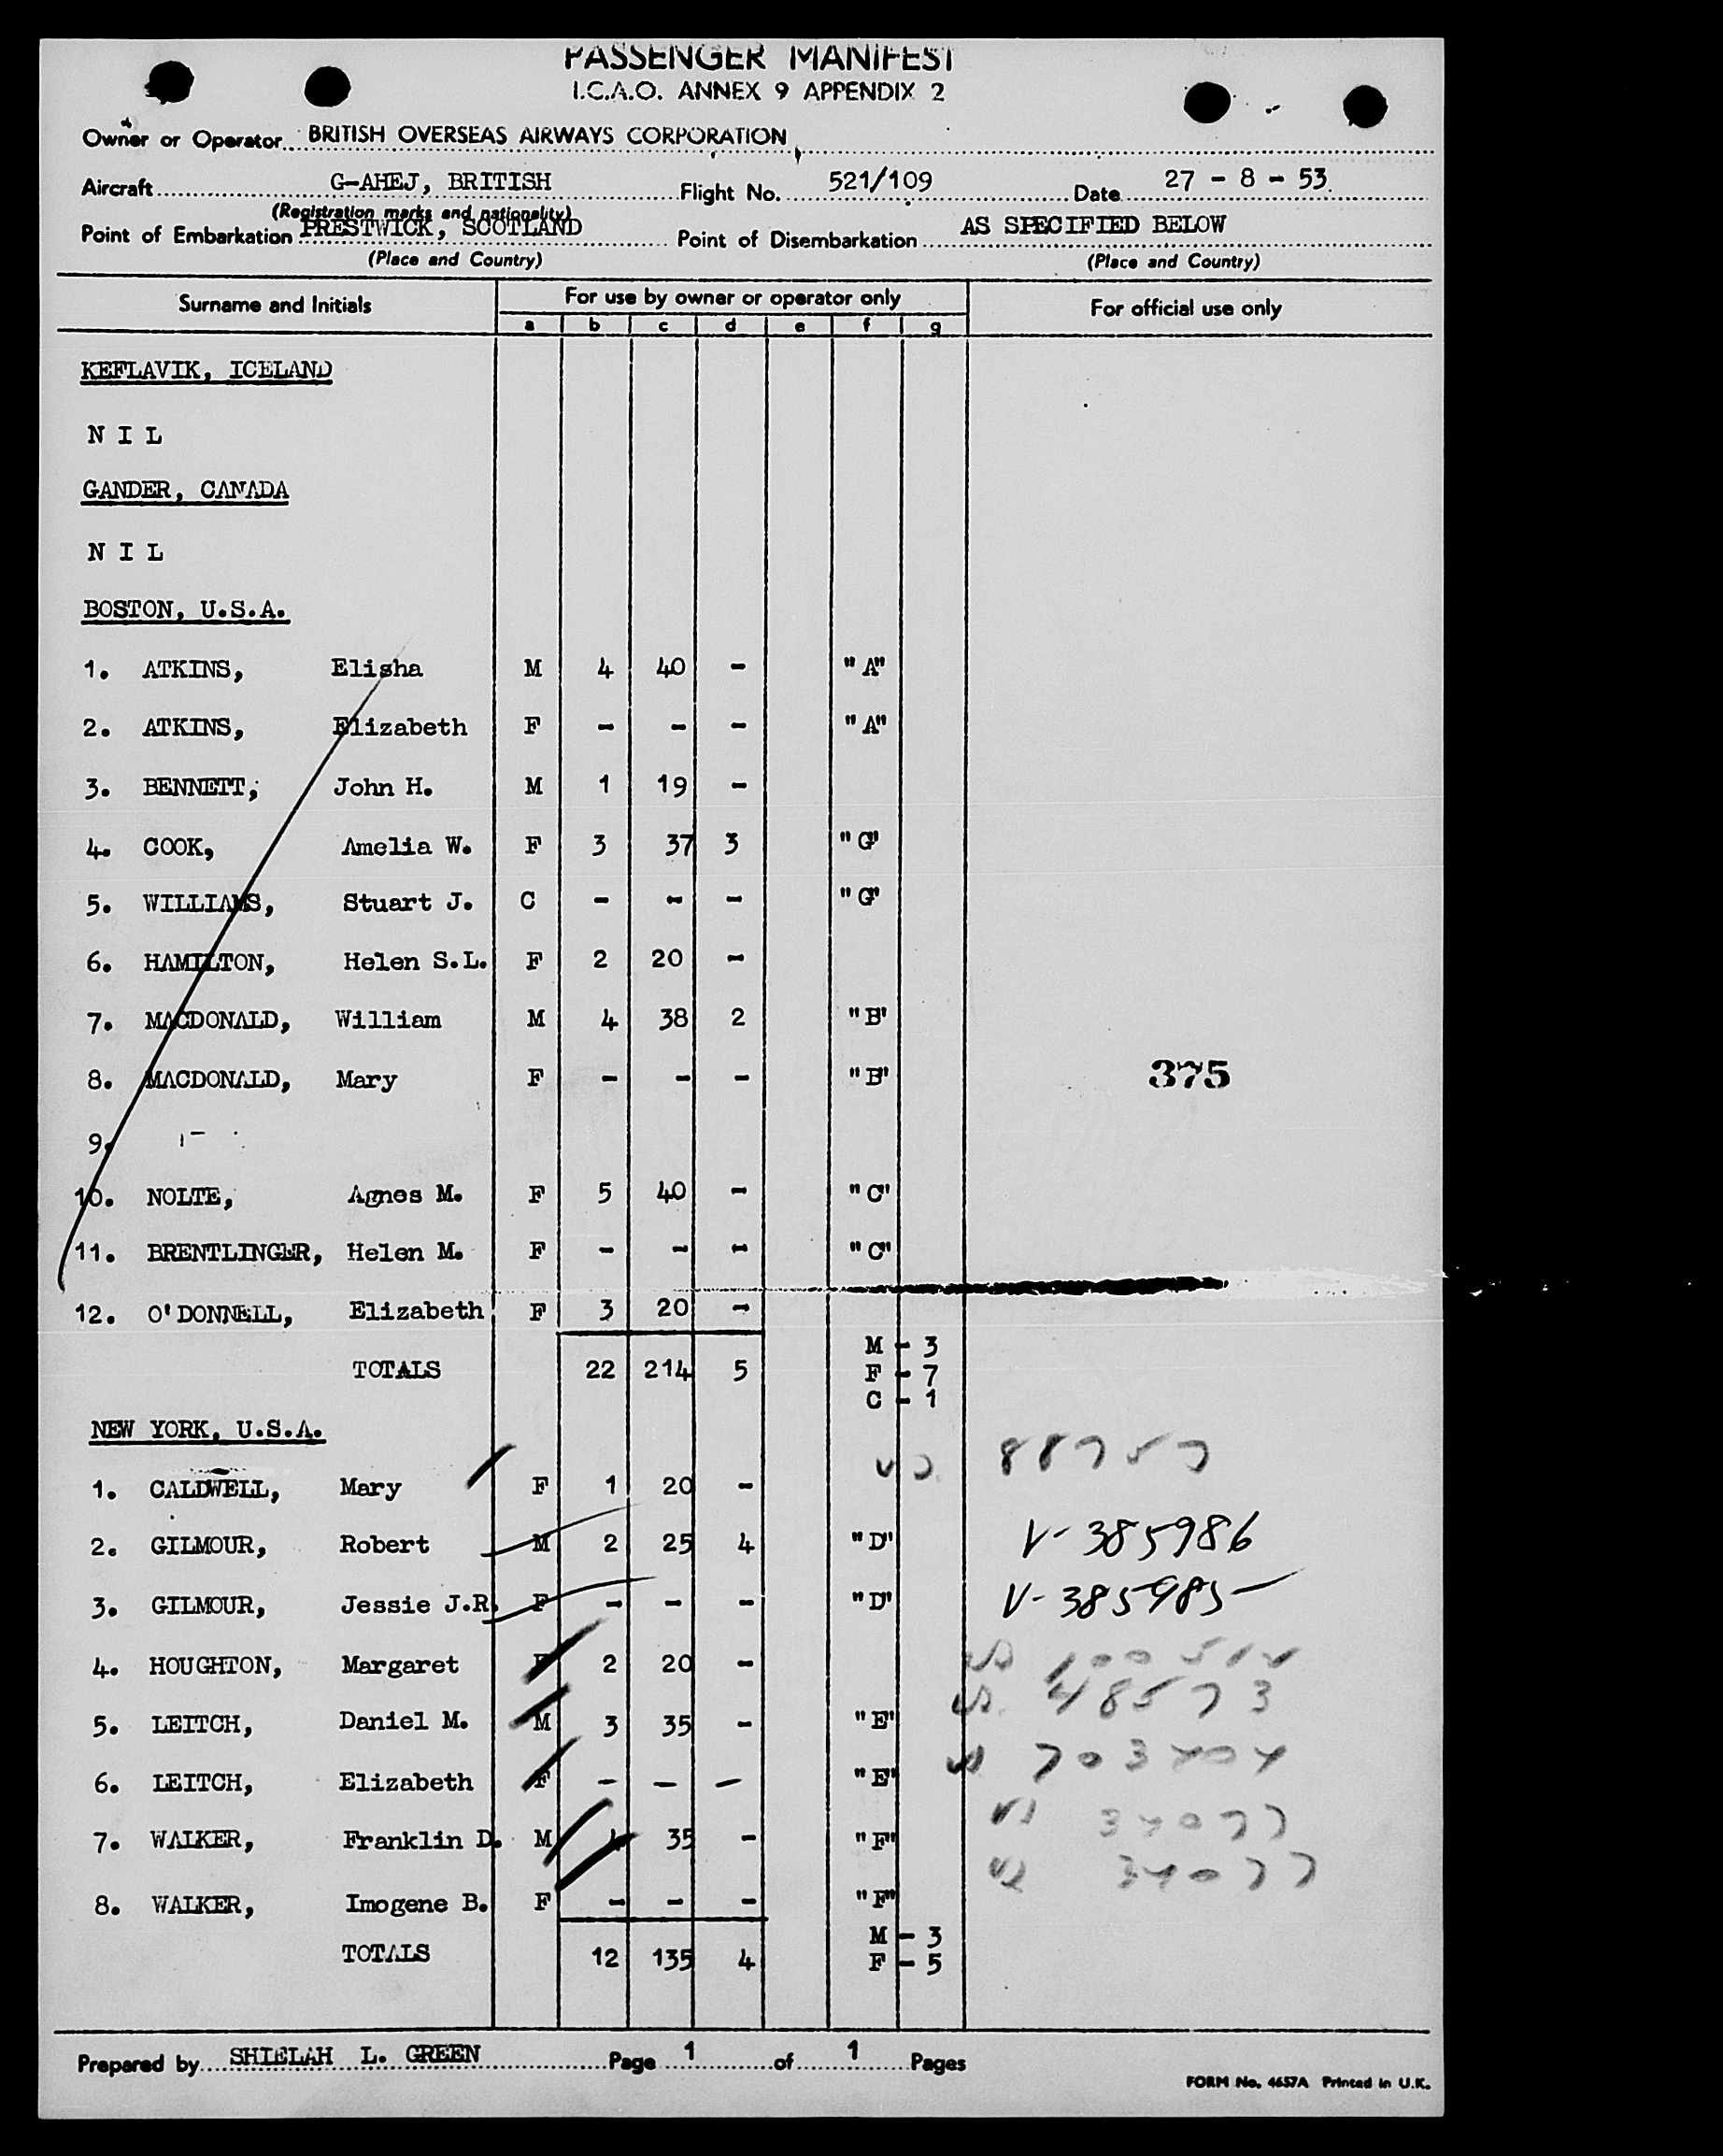 PASSENGER MANIFEST
I.C.A.O. ANNEX 9 APPENDIX 2
Owner or Operator BRITISH OVERSEAS AIRWAYS CORPORATION
Aircraft G-AHEJ, BRITISH Flight No. 521/109 Date 27 - 8 - 53
(Registration marks and nationality)
Point of Embarkation PRESTWICK, SCOTLAND Point of Disembarkation AS SPECIFIED BELOW
(Place and Country) (Place and Country)
Surname and Initials For use by owner or operator only For official use only
a b c d e f g
KEFLAVIK, ICELAND
N I L
GANDER, CANADA
N I L
BOSTON, U.S.A.
1. ATKINS, Elisha M 4 40 - "A"
2. ATKINS, Elizabeth F - - - "A"
3. BENNETT; John H. M 1 19 -
4. COOK, Amelia W. F 3 37 3 "G"
5. WILLIAMS, Stuart J. C - - - "G"
6. HAMILTON, Helen S.L. F 2 20 -
7. MACDONALD, William M 4 38 2 "B"
8. MACDONALD, Mary F - - - "B" 375
9.
10. NOLTE, Agnes M. F 5 40 - "C"
11. BRENTLINGER, Helen M. F - - - "C"
12. O'DONNELL, Elizabeth F 3 20 -
TOTALS 22 214 5 M - 3
F - 7
C - 1
NEW YORK, U.S.A.
1. CALDWELL, Mary F 1 20 -
2. GILMOUR, Robert M 2 25 4 "D" V-385986
3. GILMOUR, Jessie J.R. F - - - "D" V-385985
4. HOUGHTON, Margaret 2 20 -
5. LEITCH, Daniel M. M 3 35 - "E" 48573
6. LEITCH, Elizabeth F - - - "E"
7. WALKER, Franklin D. M 35 - "F"
8. WALKER, Imogene B. F - - - "F"
TOTALS 12 135 4 M - 3
F - 5
Prepared by SHIELAH L. GREEN Page 1 of 1 Pages
FORM No. 4657A Printed in U.K.